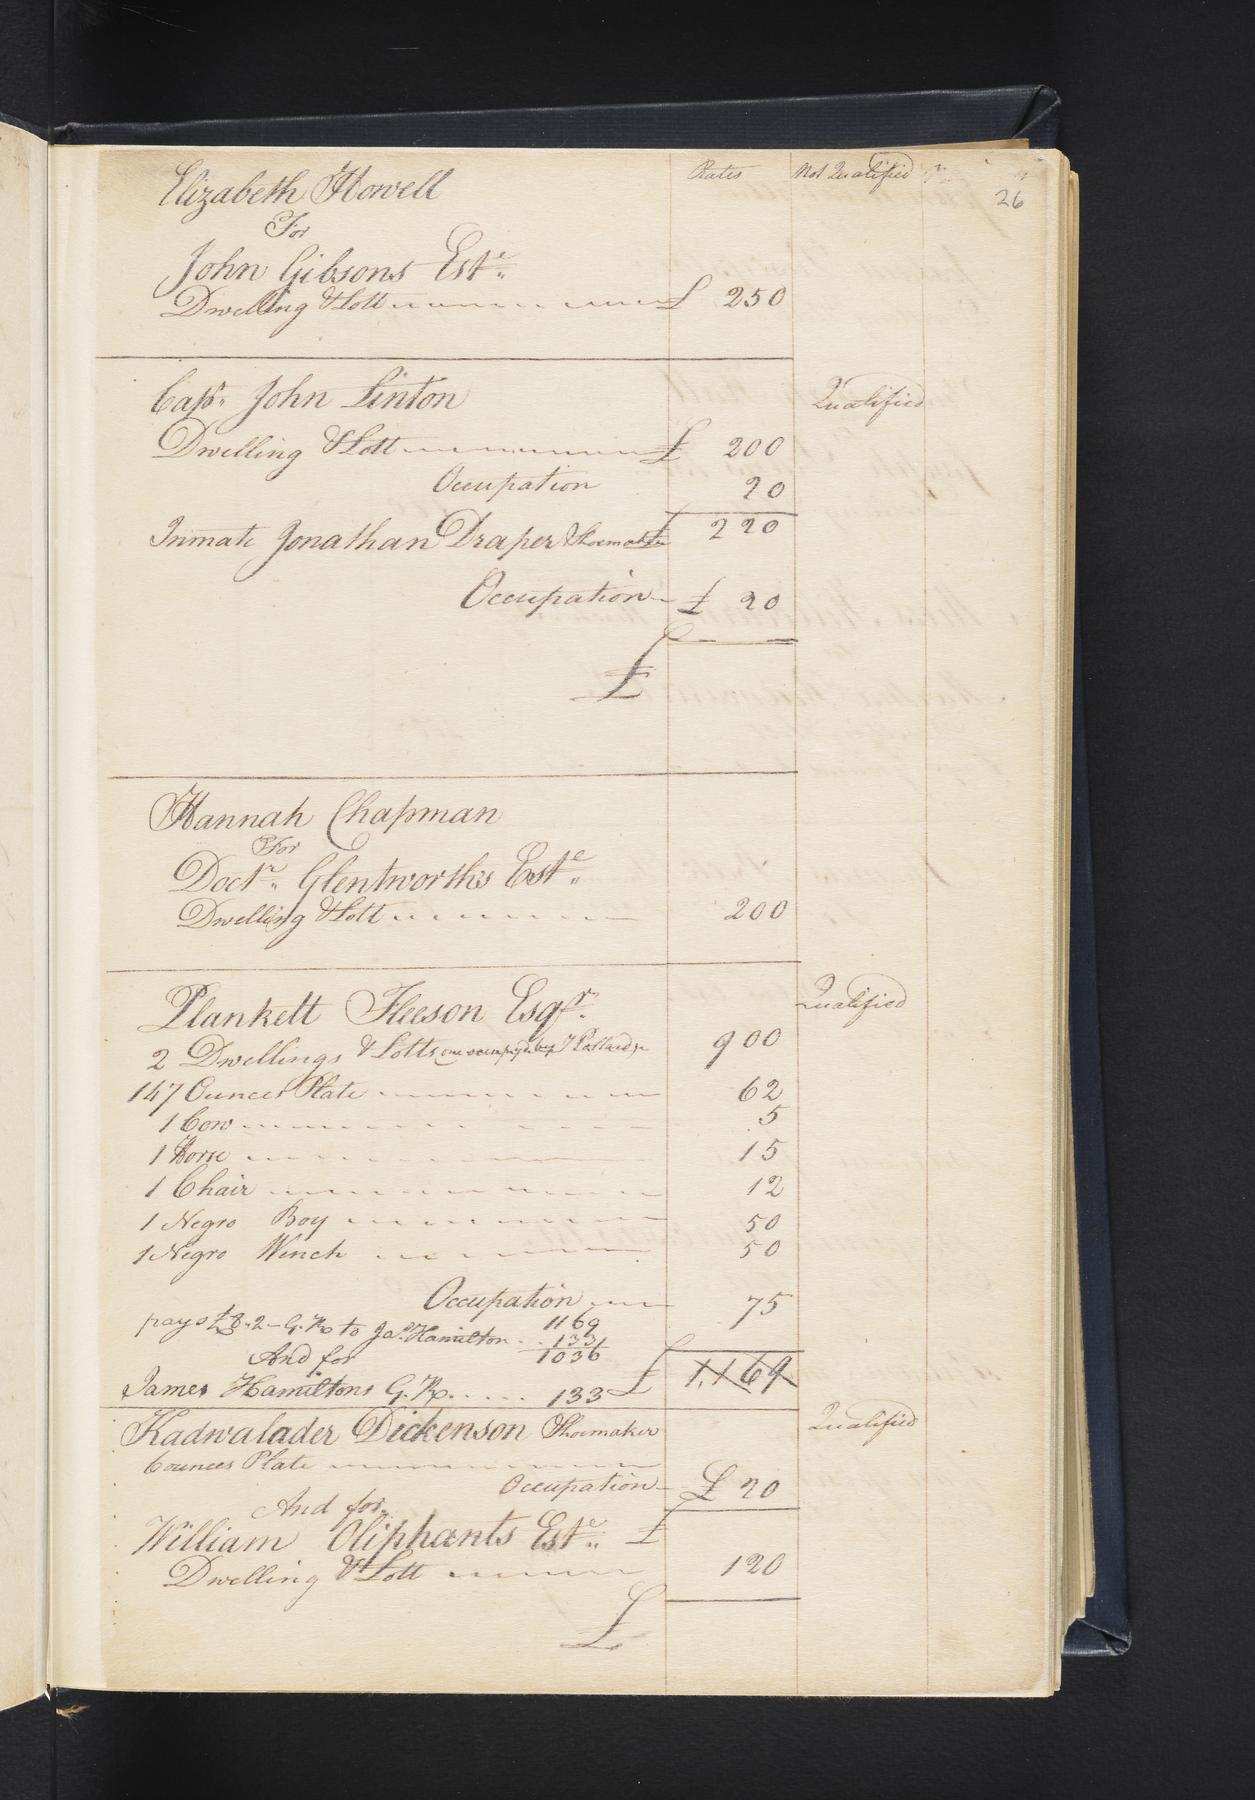 Rates Not Qualified
26
Elizabeth Howell
For
John Gibsons Este
Dwelling & Lott £ 250
Capn. John Linton Qualified
Dwelling & Lott £ 200
Occupation 20
Inmate Jonathan Draper Shoemaker £ 220
Occupation £ 20
£
Hannah Chapman
For
Doctr. Glentworths Este
Dwelling & Lott 200
Plankett Fleeson Esqr. Qualified
2 Dwellings & Lotts one occupyd. by 900
147 Ounces Plate 62
1 Cow 5
1 Horse 15
1 Chair 12
1 Negro Boy 50
1 Negro Wench 50
Occupation 75
pays £8.2 G. Rt to Jas. Hamilton 1169
133
And for 1036
£ 1,169
James Hamiltons G. Rt 133
Kadwalader Dickenson Shoemaker Qualified
6 ounces Plate
Occupation £ 20
And for
William Oliphants Este £
Dwelling & Lott 120
£